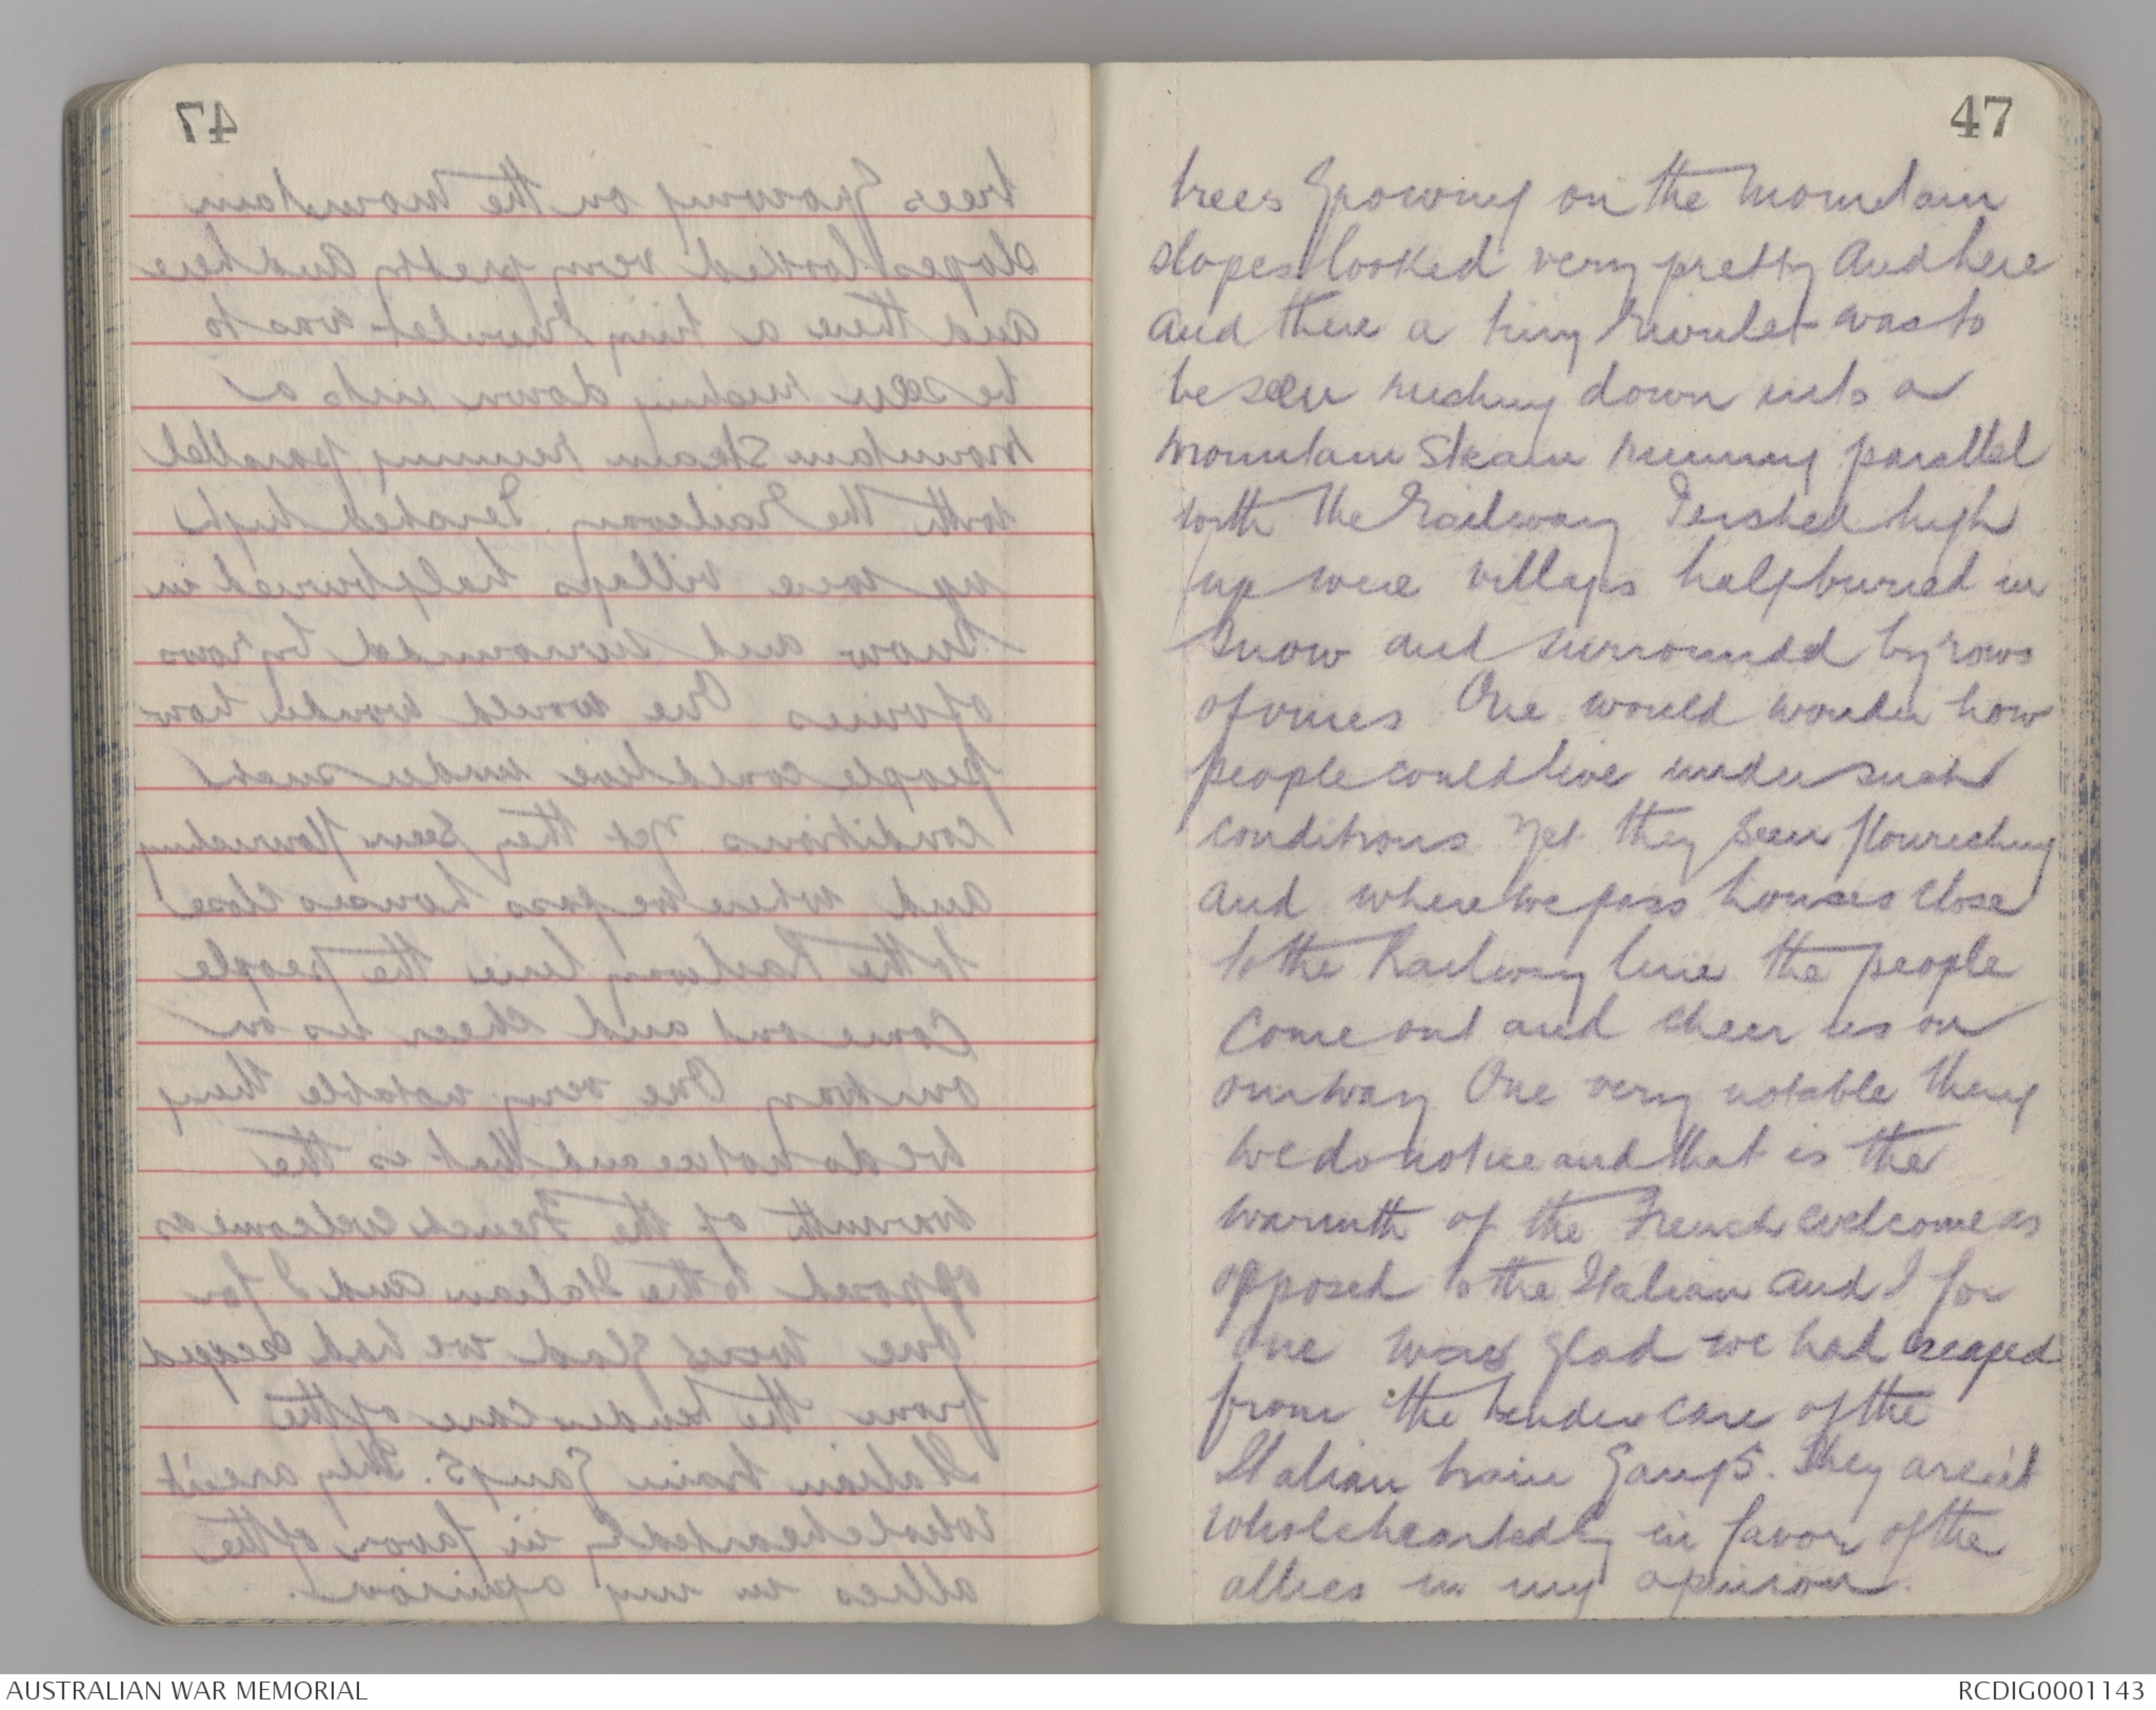 47
trees growing on the mountain
slopes looked very pretty and here
and there a tiny rivulet was to
be seen rushing down into a
mountain stream running parallel
with the railway Perched high
up were villages half buried in
snow and surrounded by rows
of vines One would wonder how
people could live under such
conditions Yet they seem flourishing
and where we pass houses close
to the Railway line the people
come out and cheer us on
our way One very notable thing
we do notice and that is the
warmth of the French welcome as
opposed to the Italian and I for
one was glad we had escaped
from the tender care of the
Italian train gangs. They aren't
wholeheartedly in favor of the
allies in my opinion.
AUSTRALIAN WAR MEMORIAL
RCDIG0001143